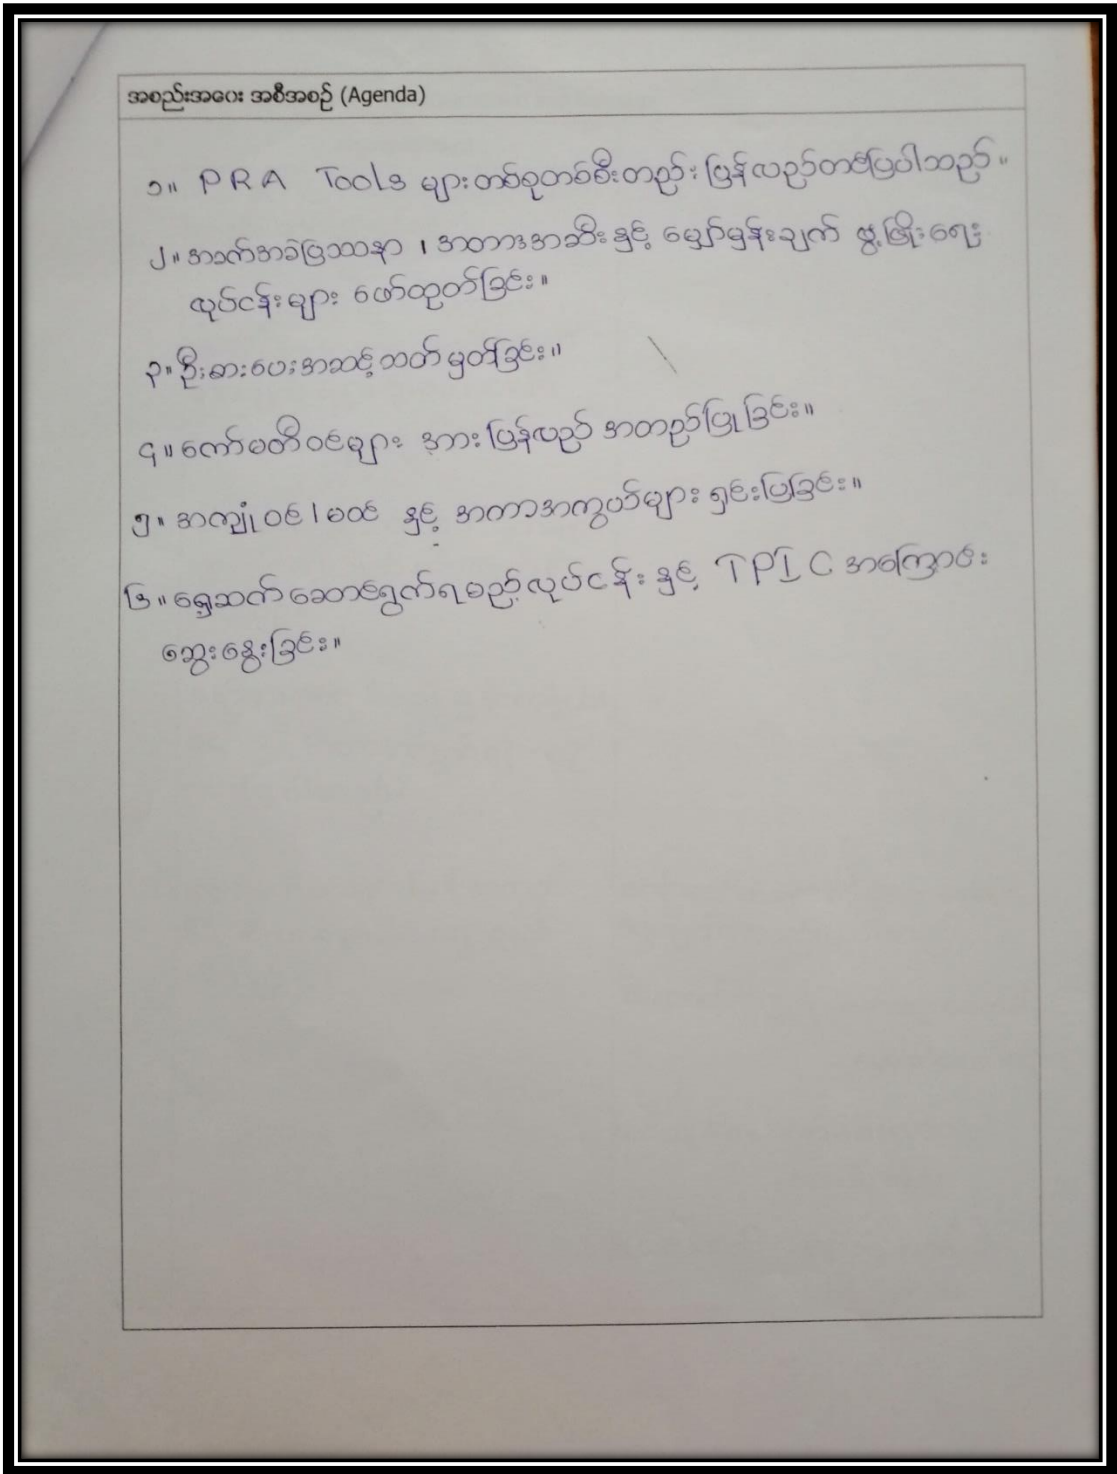 အစည်းအဝေး အစီအစဉ် (Agenda)
၁။ PRA Tools များတစ်ခုတစ်စီးတည်း ပြန်လည်တင်ပြပါသည်။
၂။ အခက်အခဲပြဿနာ ၊ အတားအဆီး နှင့် မျှော်မှန်းချက် ဖွံ့ဖြိုးရေး
လုပ်ငန်းများ ဖော်ထုတ်ခြင်း။
၃။ ဦးစားပေးအဆင့်သတ်မှတ်ခြင်း။
၄။ ကော်မတီဝင်များ အား ပြန်လည် အတည်ပြုခြင်း။
၅။ အကျုံးဝင်/မဝင် နှင့် အကာအကွယ်များ ရှင်းပြခြင်း။
၆။ ရှေ့ဆက်ဆောင်ရွက်ရမည့်လုပ်ငန်း နှင့် TPIC အကြောင်း
ဆွေးနွေးခြင်း။